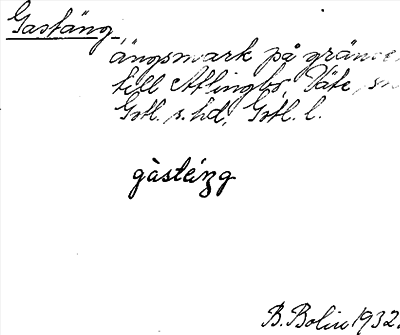 Gastäng,
ängsmark på gränce
till Atlingbo, Väte sn
Gotl. s. hd, Gotl. l.
gàsténg
B. Bolin 1932.